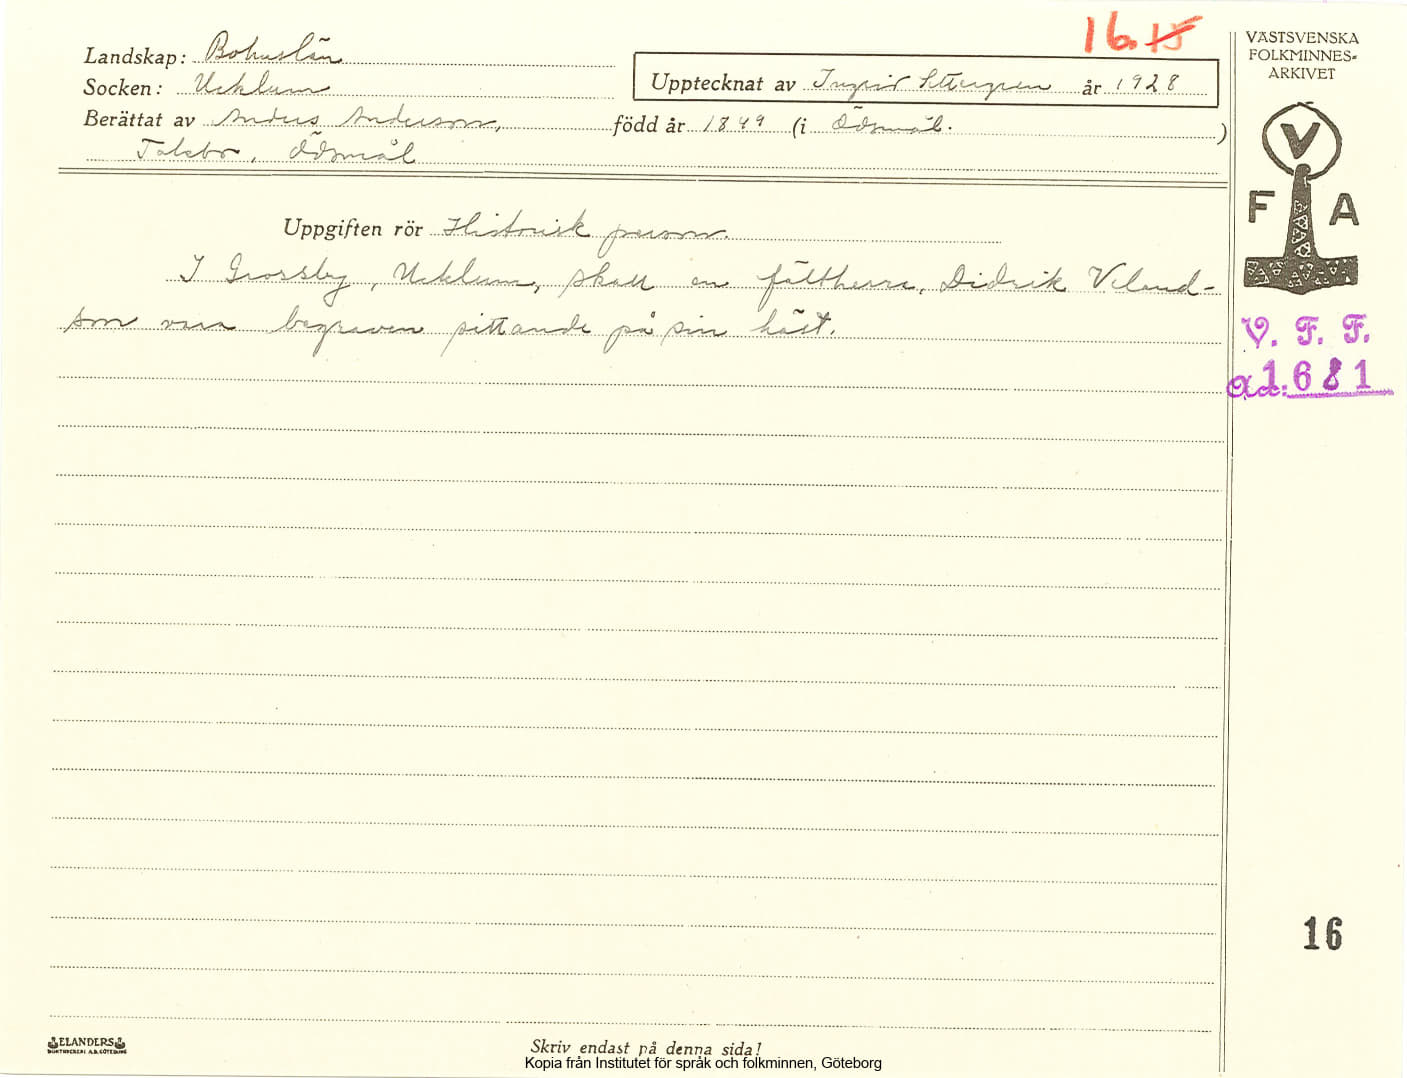 16. 15
VÄSTSVENSKA
FOLKMINNES-
ARKIVET
Landskap: Bohuslän
Socken: Ucklum
Upptecknat av Ingrid år 1928
Berättat av Anders Anderson, född år 1849 (i Ödsmål. )
Ödsmål
V
F A
Uppgiften rör Historisk person.
I Grossby, Ucklum, skall en fältherre, Didrik Veland-
son vara begraven sittande på sin häst.
V. F. F.
1681
16
ELANDERS
BOKTRYCKERI A.B. GÖTEBORG
Skriv endast på denna sida!
Kopia från Institutet för språk och folkminnen, Göteborg